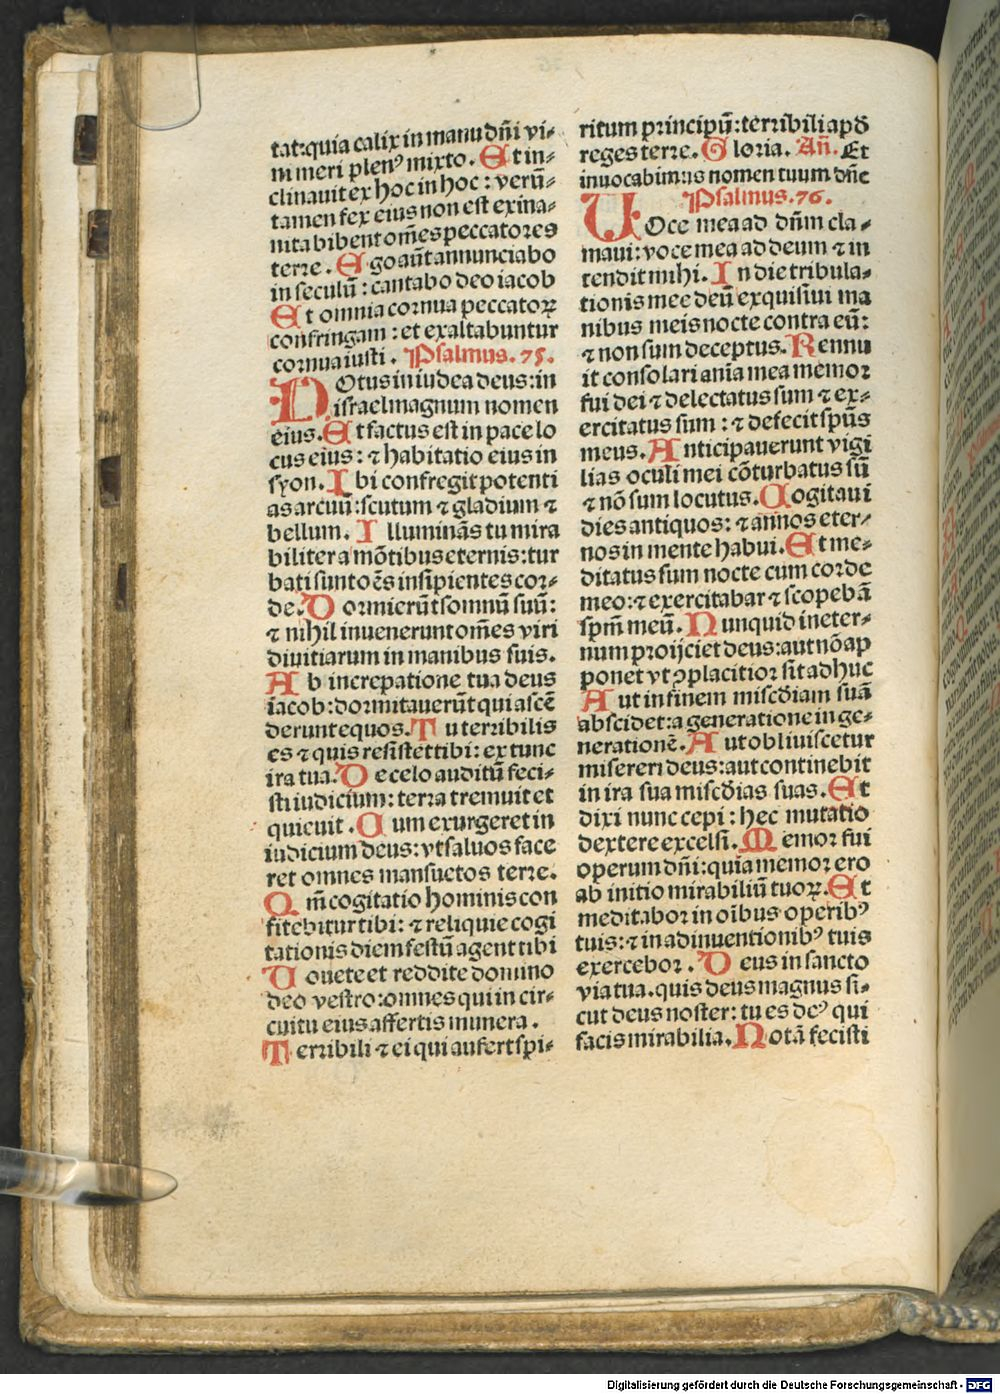 tat:quia calix in manu dñi vi⸗
ni meri plenꝰ mixto. Et in⸗
clinauit ex hoc in hoc : verũ⸗
tamen fex eius non est exina⸗
nita bibent om̃es peccatores
terre. Ego aũt annunciabo
in seculũ : cantabo deo iacob
Et omnia cornua peccatoꝝ
confringam : et exaltabuntur
cornua iusti. Psalmus. 75.
NOtus in iudea deus: in
israel magnum nomen
eius. Et factus est in pace lo
cus eius : ⁊ habitatio eius in
syon. Ibi confregit potenti
as arcuũ: scutum ⁊ gladium ⁊
bellum. Illuminãs tu mira
biliter a mõtibus eternis: tur
bati sunt oẽs insipientes cor⸗
de. Dormierũt somnũ suũ:
⁊ nihil inuenerunt om̃es viri
diuitiarum in manibus suis.
Ab increpatione tua deus
iacob: dormitauerũt qui ascẽ
derunt equos. Tu terribilis
es ⁊ quis resistet tibi: ex tunc
ira tua. De celo auditũ feci⸗
sti iudicium: terra tremuit et
quieuit. Cum exurgeret in
iudicium deus: vt saluos face
ret omnes mansuetos terre.
Qm̃ cogitatio hominis con
fitebitur tibi: ⁊ reliquie cogi
tationis diem festũ agent tibi
Uouete et reddite domino
deo vestro: omnes qui in cir⸗
cuitu eius affertis munera.
Terribili ⁊ ei qui aufert spi⸗
ritum principũ: terribili apđ
reges terre. Gloria. Añ. Et
inuocabimus nomen tuum dñe
Psalmus. 76.
UOce mea ad dñm cla⸗
maui: voce mea ad deum ⁊ in
tendit mihi. In die tribula⸗
tionis mee deũ exquisiui ma
nibus meis nocte contra eũ:
⁊ non sum deceptus. Rennu
it consolari aĩa mea memor
fui dei ⁊ delectatus sum ⁊ ex⸗
ercitatus sum : ⁊ defecit spũs
meus. Anticipauerunt vigi
lias oculi mei cõturbatus sũ
⁊ nõ sum locutus. Cogitaui
dies antiquos: ⁊ annos eter⸗
nos in mente habui. Et me⸗
ditatus sum nocte cum corde
meo: ⁊ exercitabar ⁊ scopebã
spm̃ meũ. Nunquid in eter⸗
num proijciet deus: aut nõ ap
ponet vt ꝯplacitior sit adhuc
Aut in finem miscđiam suã
abscidet: a generatione in ge⸗
nerationẽ. Aut obliuiscetur
misereri deus: aut continebit
in ira sua miscđias suas. Et
dixi nunc cepi : hec mutatio
dextere excelsi. Memor fui
operum dñi: quia memor ero
ab initio mirabiliũ tuoꝝ. Et
meditabor in oĩbus operibꝰ
tuis: ⁊ in adinuentionibꝰ tuis
exercebor. Deus in sancto
via tua. quis deus magnus si⸗
cut deus noster: tu es dẽꝰ qui
facis mirabilia. Notã fecisti
Digitalisierung gefördert durch die Deutsche Forschungsgemeinschaft - DFG